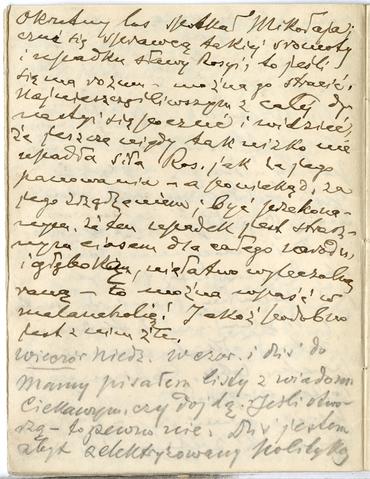 Okrutny los spotkał Mikołaja;
czuć się sprawcą takiej sromoty
i upadku sławy Rosyi; to jeśli
się ma rozum - można go stracić.
Najnieszczęśliwszym z całej dy
nastyi się poczuć i widzieć,
że jeszcze nigdy tak nizko nie
upadła siła Ros. jak za jego
panowania - a poniekąd, za
jego zrządzeniem; być przekona-
nym, że ten upadek jest strasz-
nym ciosem dla całego narodu,
i głęboką, niełatwo wyleczalną
raną - to można wpaść w
melancholię! Jakoż podobno
jest z nim źle.
wieczór niedz. wczor. i dziś do
Mamy pisałem listy z wiadom
Ciekawym, czy dojdą. Jeśli otwo-
rzą - to pewno nie. Dziś jestem
zbyt zelektryzowany polityką